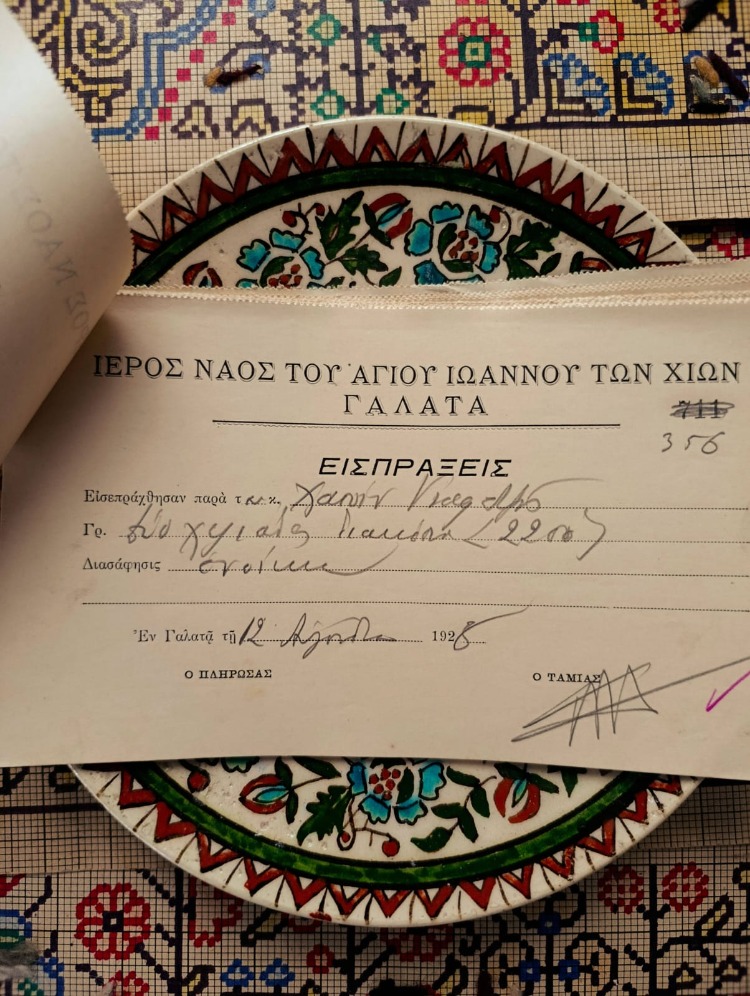 ΙΕΡΟΣ ΝΑΟΣ ΤΟΥ ἉΓΙΟΥ ΙΩΑΝΝΟΥ ΤΩΝ ΧΙΩΝ
ΓΑΛΑΤΑ
356
ΕΙΣΠΡΑΞΕΙΣ
Εἰσεπράχθησαν παρὰ τ κ.
Γρ. δύο χιλιάδες διακόσια (2200)
Διασάφησις ἐνοίκια
Ἐν Γαλατᾷ τῇ 12 Αὐγούστου 1928
Ο ΠΛΗΡΩΣΑΣ
Ο ΤΑΜΙΑΣ